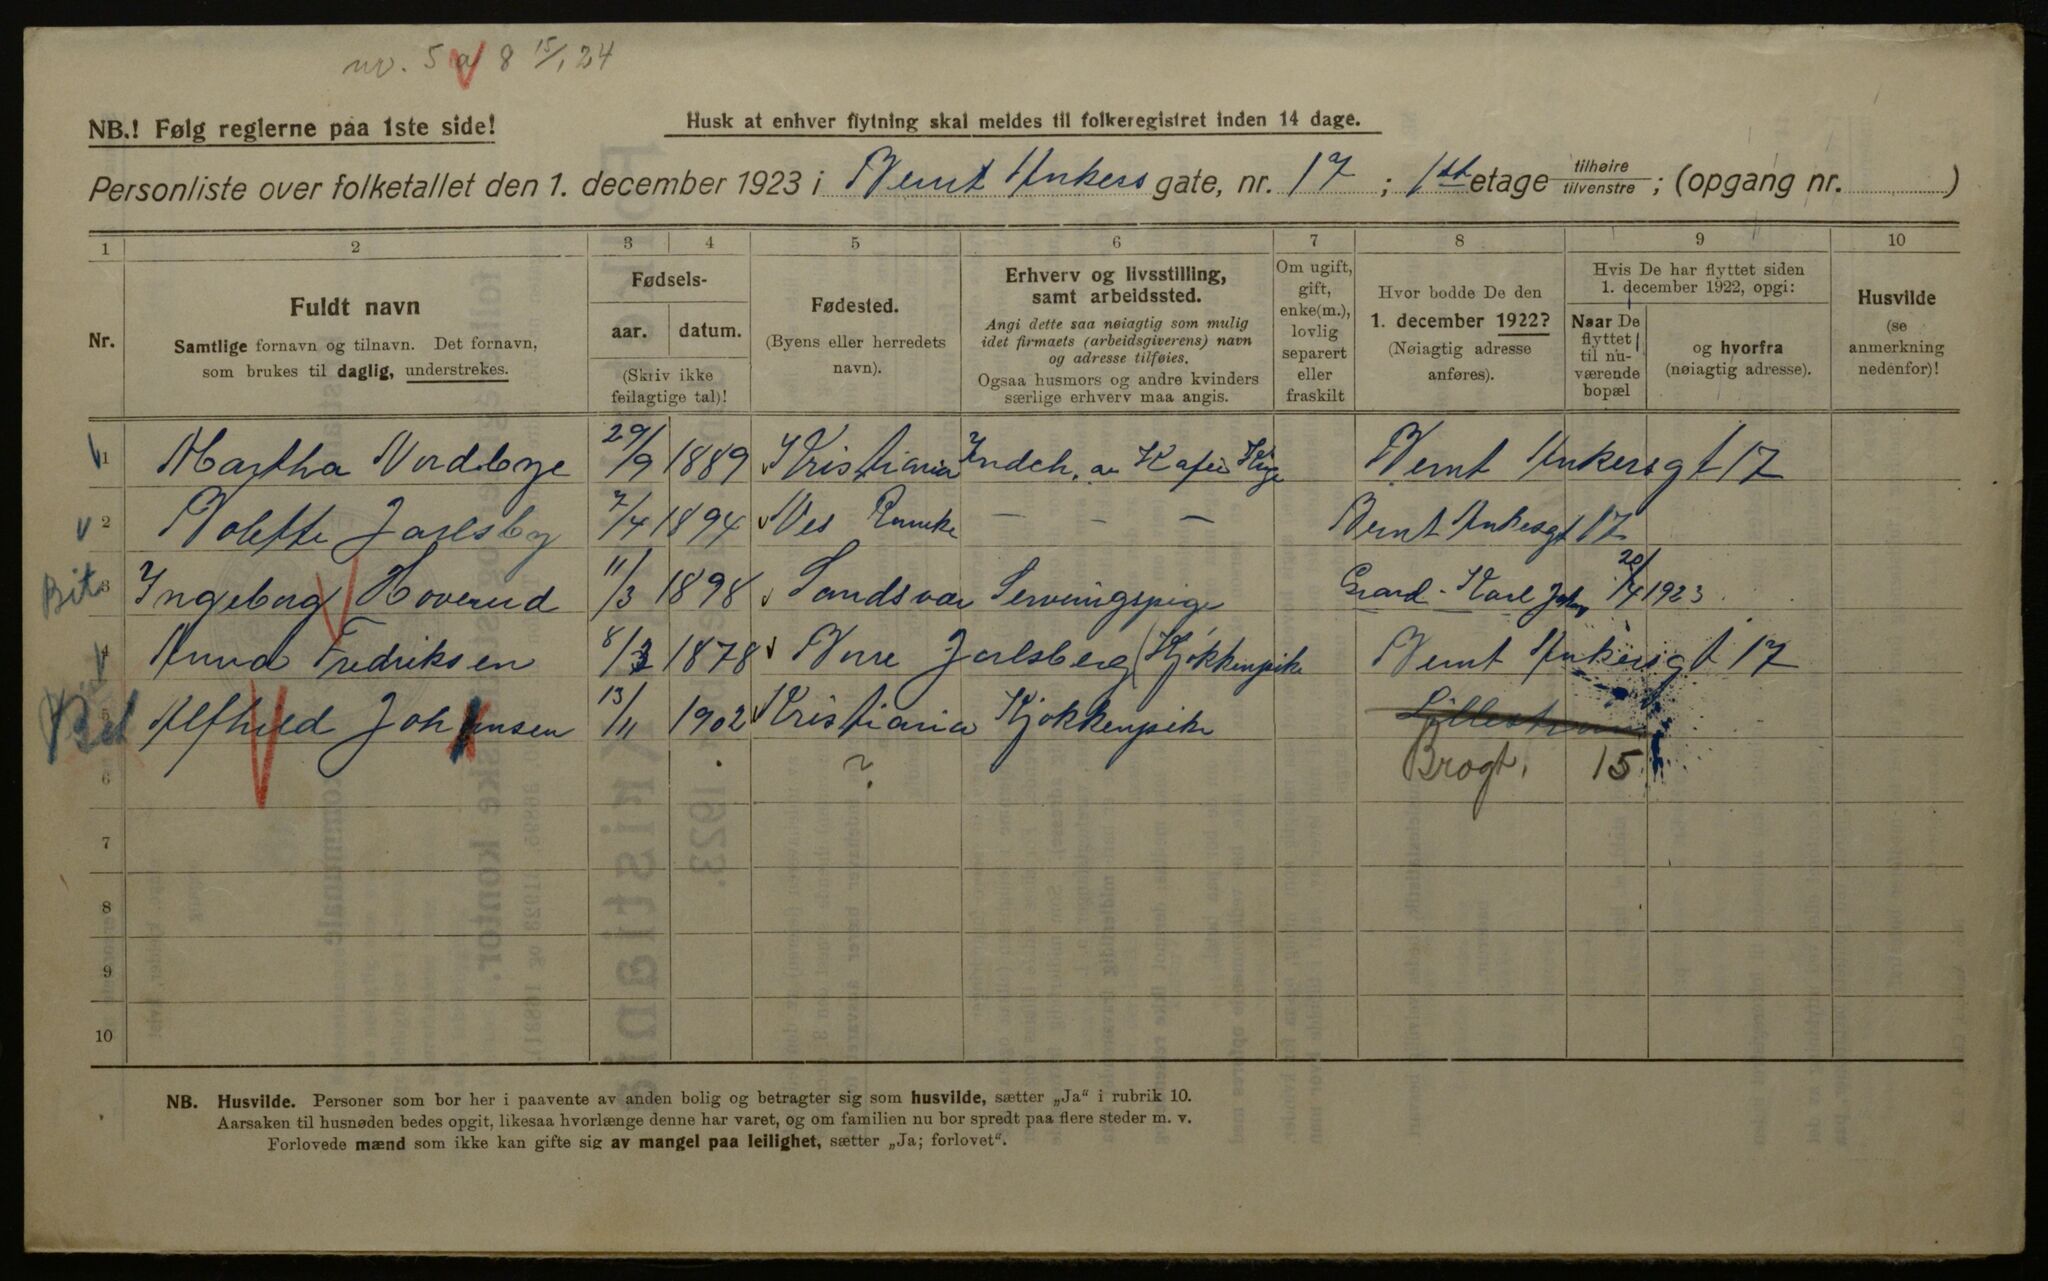 nv. 5 a 8 15/1 24
NB.! Følg reglerne paa 1ste side!
Husk at enhver flytning skal meldes til folkeregistret inden 14 dage.
Personliste over folketallet den 1. december 1923 i Bernt Ankers gate, nr. 17 ; 1ste etage tilhøire/tilvenstre ; (opgang nr. )
1 2 3 4 5 6 7 8 9 10
Nr.
Fuldt navn
Samtlige fornavn og tilnavn. Det fornavn,
som brukes til daglig, understrekes.
Fødsels-
aar. datum.
(Skriv ikke
feilagtige tal)!
Fødested.
(Byens eller herredets
navn).
Erhverv og livsstilling,
samt arbeidssted.
Angi dette saa nøiagtig som mulig
idet firmaets (arbeidsgiverens) navn
og adresse tilføies.
Ogsaa husmors og andre kvinders
særlige erhverv maa angis.
Om ugift,
gift,
enke(m.),
lovlig
separert
eller
fraskilt
Hvor bodde De den
1. december 1922?
(Nøiagtig adresse
anføres).
Hvis De har flyttet siden
1. december 1922, opgi:
Naar De
flyttet
til nu-
værende
bopæl
og hvorfra
(nøiagtig adresse).
Husvilde
(se
anmerkning
nedenfor)!
1 Martha Nordbye 29/9 1889 Kristiania Indeh. av Kafe Bernt Ankersgt 17
2 Bolette Jarlsby 7/4 1894 Ves - - - Bernt Ankesgt 17
Bit 3 Ingeborg Hoverud 11/3 1898 Sandsvær Serveringspige Grand - Karl Joh 20/4 1923
4 Anna Fredriksen 8/3 1878 Borre Jarlsberg Kjøkkenpike Bernt Ankersgt 17
Bit 5 Alfhild Johansen 13/11 1902 Kristiania Kjøkkenpike Lillestrøm
6 ? Brogt. 15
7
8
9
10
NB. Husvilde. Personer som bor her i paavente av anden bolig og betragter sig som husvilde, sætter „Ja“ i rubrik 10.
Aarsaken til husnøden bedes opgit, likesaa hvorlænge denne har varet, og om familien nu bor spredt paa flere steder m. v.
Forlovede mænd som ikke kan gifte sig av mangel paa leilighet, sætter „Ja; forlovet“.